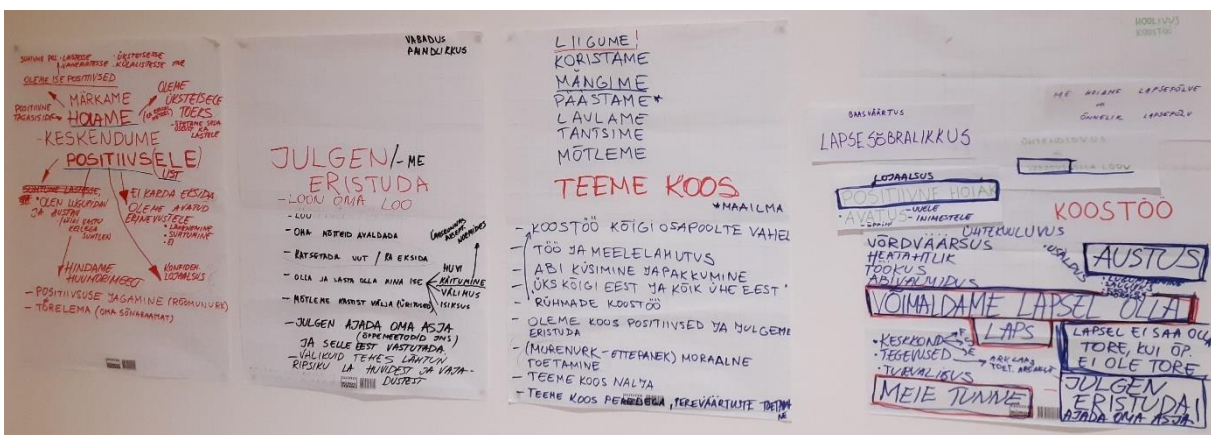 SUHTUME
LASTESSE
ÜKSTEISESSE
KÜLALISTESSE
OLEME ISE POSITIIVSED
MÄRKAME
POSITIIVNE
TAGASISIDE
HOIAME
OLEME
ÜKSTEISELE
TOEKS
LASTELE
- KESKENDUME
POSITIIVS(ELE)
UST
SUHTUME LASTESSE,
OLEN LUGUPIDAV
JA AUSTAN
KELLEGA
SUHTLEN
EI KARDA EKSIDA
OLEME AVATUD
ERINEVUSTELE
• LÄHENEMINE
• SUHTUMINE
HINDAME
HUUMORIMEELT
KONFIDEN.
LOJAALSUS
- POSITIIVSUSE JAGAMINE (RÕÕMUNURK)
- TÕRELEMA (OMA SÕNARAAMAT)
VABADUS
PAINDLIKKUS
JULGEN/-ME
ERISTUDA
- LOON OMA LOO
- LUU
- OMA MÕTTEID AVALDADA
- KATSETADA UUT / KA EKSIDA
- OLLA JA LASTA OLLA AINA ISE
HUVI
KÄITUMINE
VÄLIMUS
ISIKSUS
ÜHISKONNAS
NORMIDES
- MÕTLEME KASTIST VÄLJA (ÜRITUSED)
- JULGEN AJADA OMA ASJA
(ÕPPEMEETODID JNS)
JA SELLE EEST VASTUTADA
- VALIKUID TEHES LÄHTUN
RIPSIKU LA HUVIDEST JA VAJA-
DUSTEST
LIIGUME!
KORISTAME
MÄNGIME
PÄÄSTAME*
LAULAME
TANTSIME
MÕTLEME
TEEME KOOS
*MAAILMA
- KOOSTÖÖ KÕIGI OSAPOOLTE VAHEL
- TÖÖ JA MEELELAHUTUS
- ABI KÜSIMINE JA PAKKUMINE
- ÜKS KÕIGI EEST JA KÕIK ÜHE EEST
- RÜHMADE KOOSTÖÖ
- OLEME KOOS POSITIIVSED JA JULGEME
ERISTUDA
- (MURENURK - ETTEPANEK) MORAALNE
TOETAMINE
- TEEME KOOS NALJA
- TEEME KOOS PEREDEGA, PEREVÄÄRTUSTE TOETAMI
NE
HOOLIVUS
KOOSTÖÖ
ME HOIAME LAPSEPÕLVE
ÕNNELIK LAPSEPÕLV
BAASVÄÄRTUS
LAPSESÕBRALIKKUS
LOJAALSUS
POSITIIVNE HOIAK
• AVATUS - UUELE
- INIMESTELE
KOOSTÖÖ
ÜHTEKUULUVUS
VÕRDVÄÄRSUS
HEATAHTLIK
TÖÖKUS
ABIVALMIDUS
• USALDUS
AUSTUS
VÕIMALDAME LAPSEL OLLA
LAPS
• KESKKOND
• TEGEVUSED
• TURVALISUS
MEIE TUNNE
LAPSEL EI SAA OLLA
TORE, KUI ÕP.
EI OLE TORE
JULGEN
ERISTUDA!
AJADA OMA ASJA